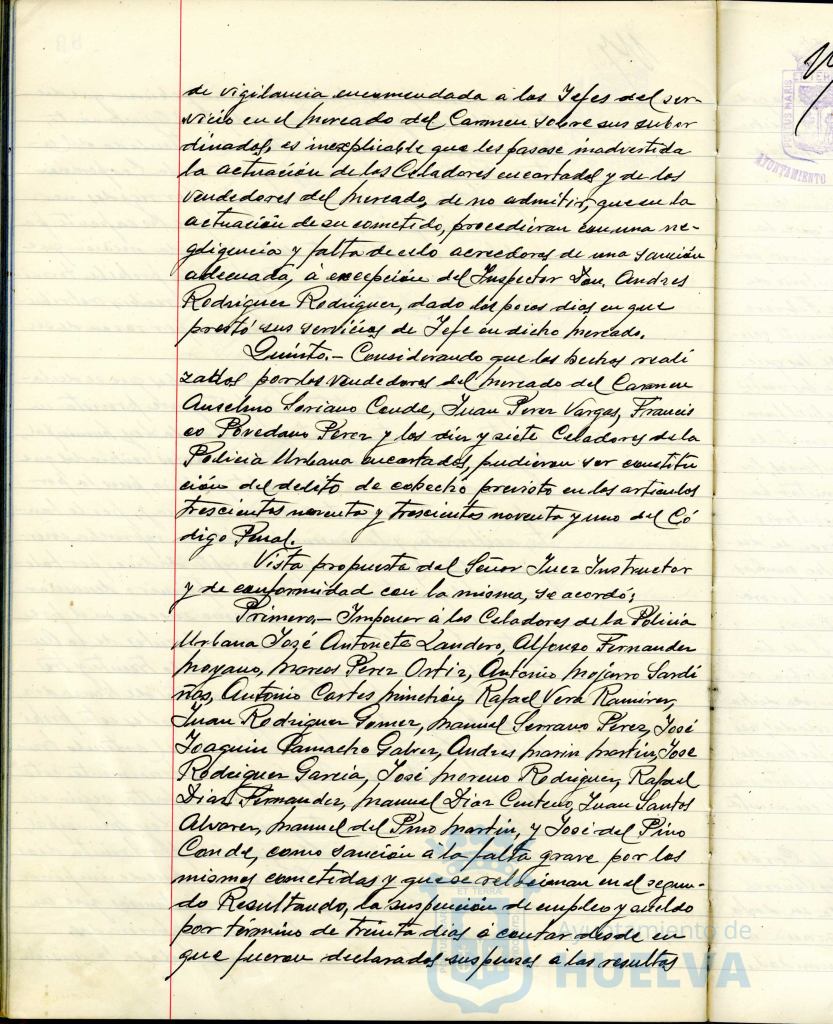 de vigilancia encomendada á los Jefes del ser-
vicio en el mercado del Carmen sobre sus subor
dinados, es inexplicable que les pasase inadvertida
la actuación de los Celadores encartados y de los
vendedores del mercado, de no admitir, que en la
actuación de su cometido, procedieran con una ne-
gdigencia y falta de celo acreedores de una sanción
adecuada, á excepción del Inspector Don. Andres
Rodriguez Rodriguez, dado los pocos dias en que
prestó sus servicios de Jefe en dicho mercado.
Quinto.- Considerando que los hechos reali
zados por los vendedores del mercado del Carmen
Anselmo Soriano Conde, Juan Perez Vargas, Francis
co Povedano Perez y los diez y siete Celadores de la
Policia Urbana encartados, pudieran ser constitu
ción del delito de cohecho previsto en los articulos
trescientos noventa y trescientos noventa y uno del Có
digo Penal.
Vista propuesta del Señor Juez Instructor
y de conformidad con la misma, se acordó;
Primero.- Imponer á los Celadores de la Policia
Urbana José Antonete Landero, Alfonso Fernandez
Moyano, Marcos Perez Ortiz, Antonio Mojarro Sardi
ñas, Antonio Cortes Minchón, Rafael Vera Ramirez,
Juan Rodriguez Gomez, Manuel Serrano Perez, José
Joaquin Camacho Galvez, Andres Marin Martin, Jose
Rodriguez Garcia, José Moreno Rodriguez, Rafael
Diaz Fernandez, Manuel Diaz Centeno, Juan Santos
Alvarez, Manuel del Pino Martin, y José del Pino
Conde, como sanción á la falta grave por los
mismos cometidas y que se relacionan en el segun-
do Resultando, la suspención de empleo y sueldo
por término de treinta dias á contar desde en
que fueron declarados suspensos á las resultas
PORTUS MARIS
AYUNTAMIENTO
ET TERRAE
Ayuntamiento de
HUELVA